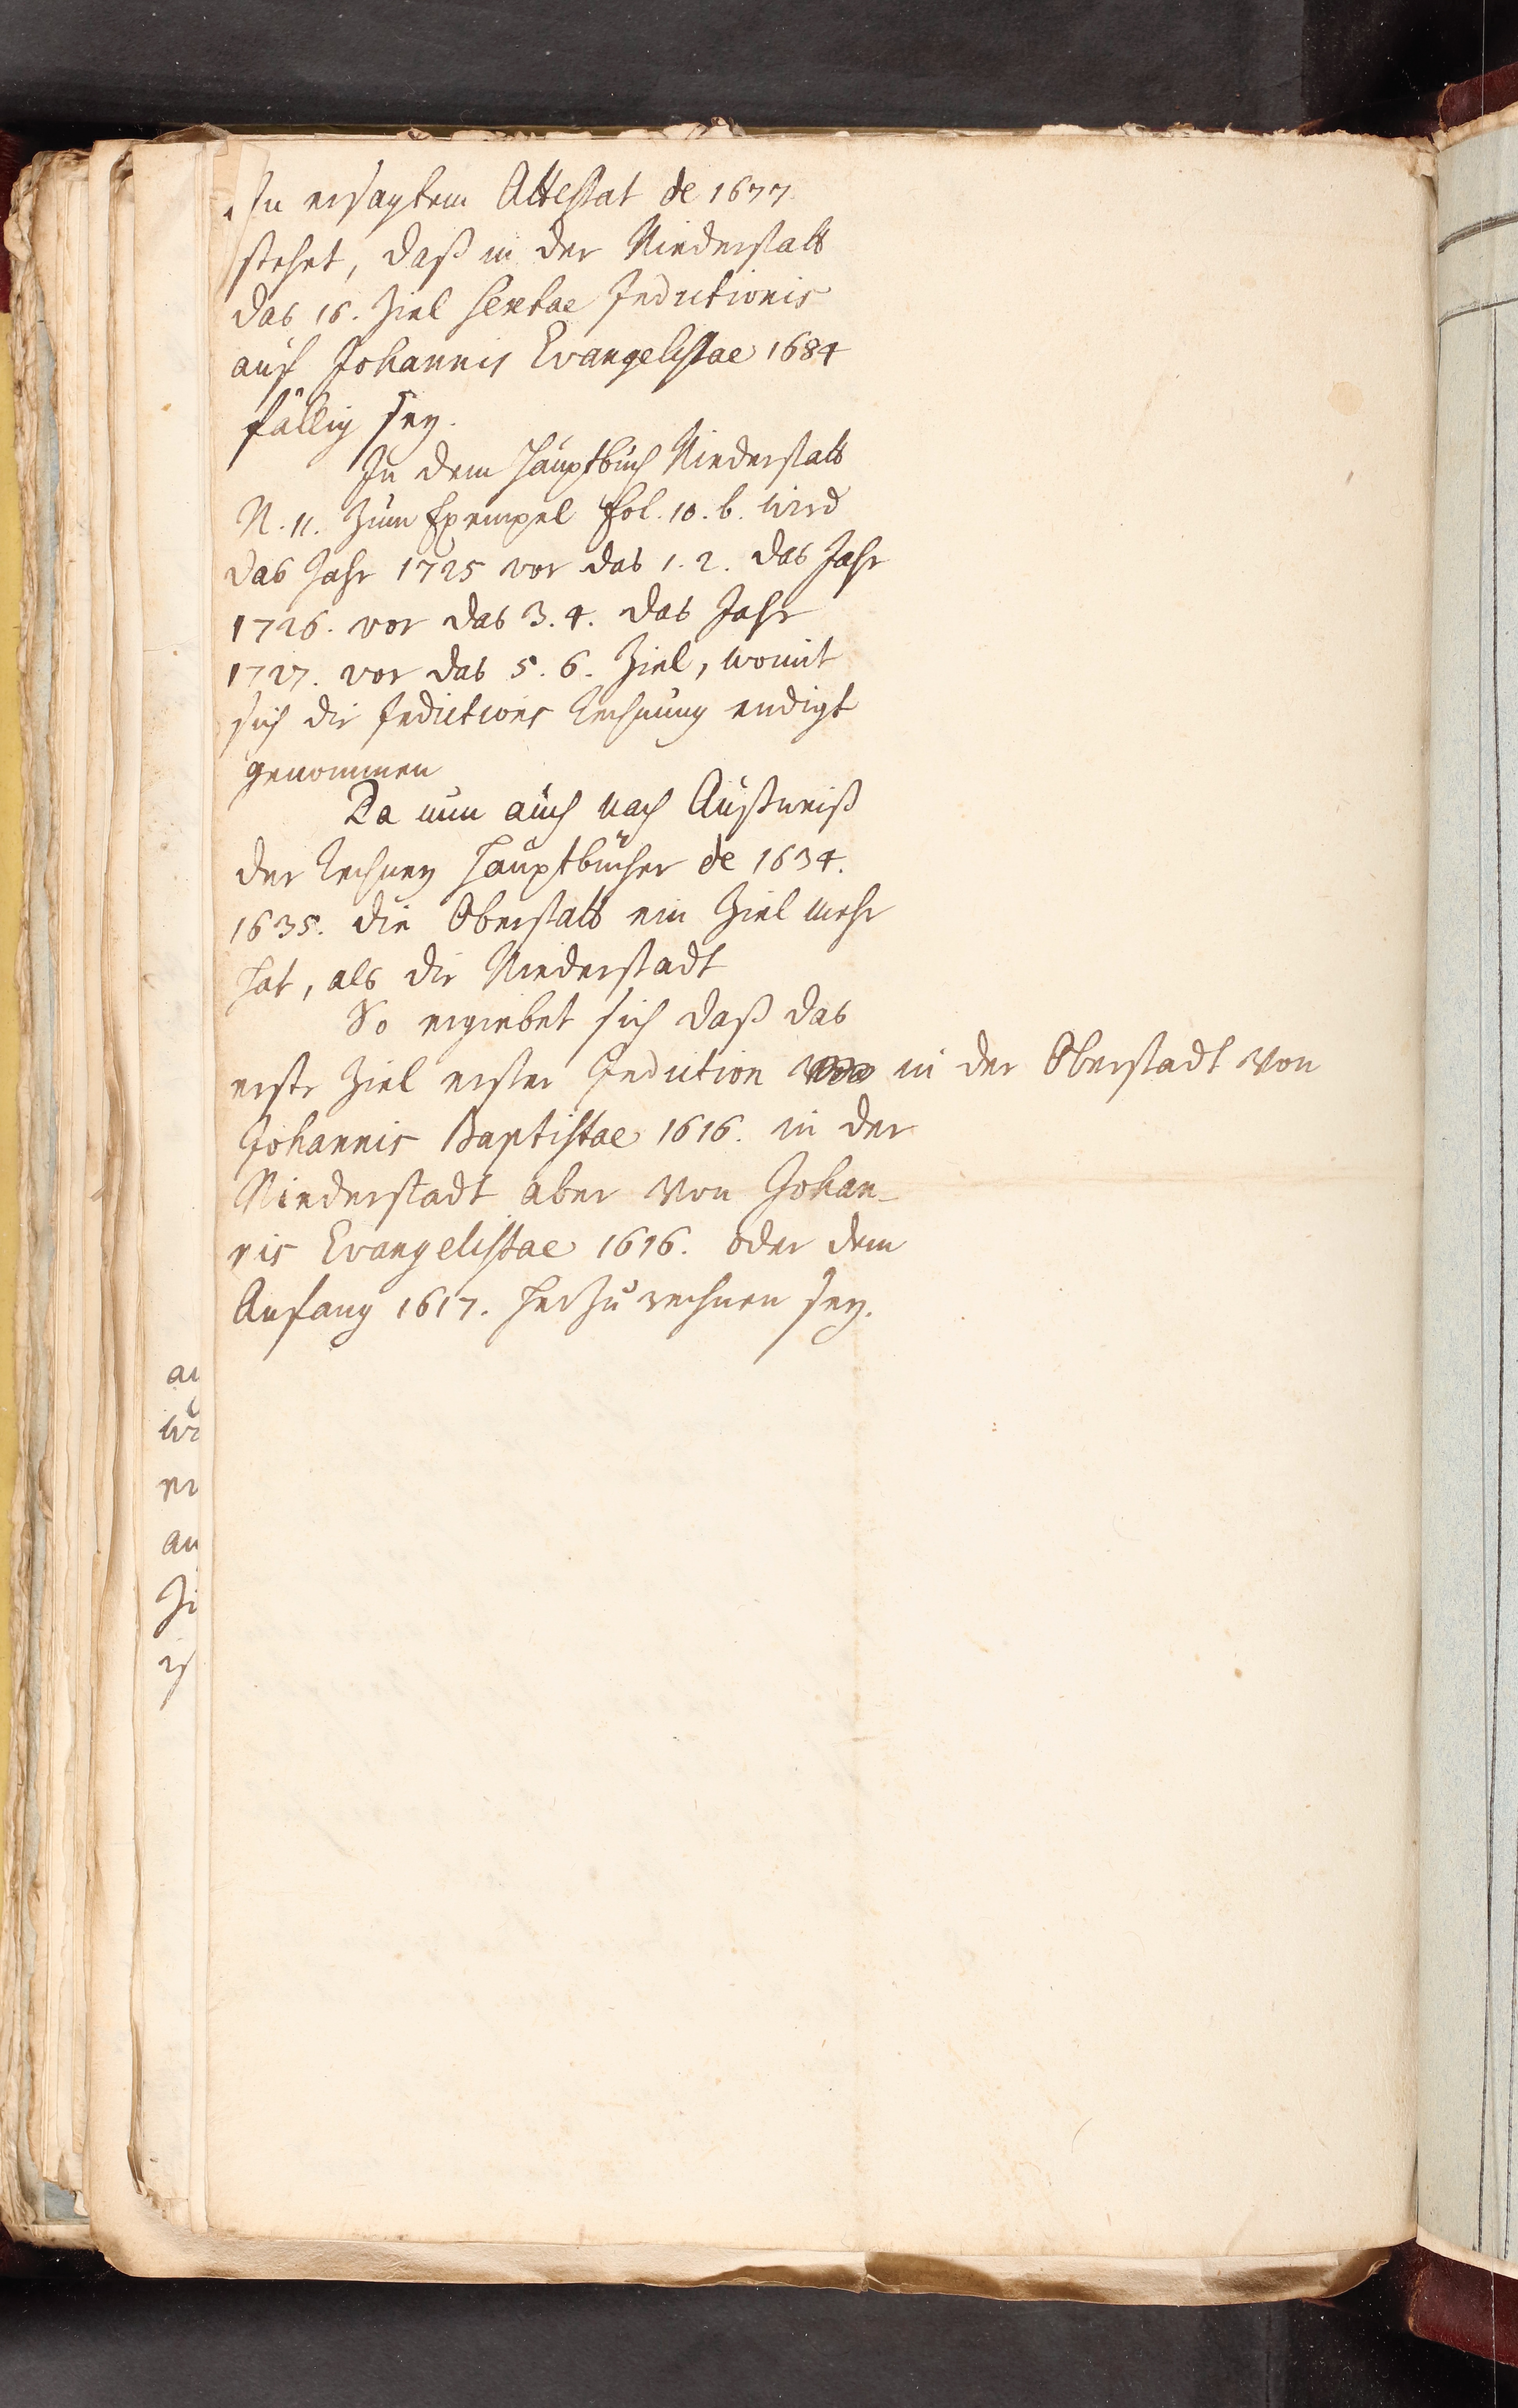 In ersagtem Attestat de 1677
stehet, daß in der Niederstatt
das 16. Ziel sextae Indictionis
auf Johannis Evangelistae 1684
fällig sey.
In dem Hauptbuch Niederstatt
N. 11. zum Exempel fol. 10. b. wird
das Jahr 1725 vor das 1. 2. das Jahr
1726. vor das 3. 4. das Jahr
1727. vor das 5. 6. Ziel, womit
sich die Indictions Rechnung endigt
genommen
Da nun auch nach Außweiß
der Rechney Hauptbücher de 1634.
1635. die Oberstatt ein Ziel mehr
hat, als die Niederstadt
So ergiebet sich daß das
erste Ziel erster Indiction in der Oberstadt von
Johannis Baptistae 1616. in der
Niederstadt aber von Johan-
nis Evangelistae 1616. oder dem
Anfang 1617. herzurechnen sey.